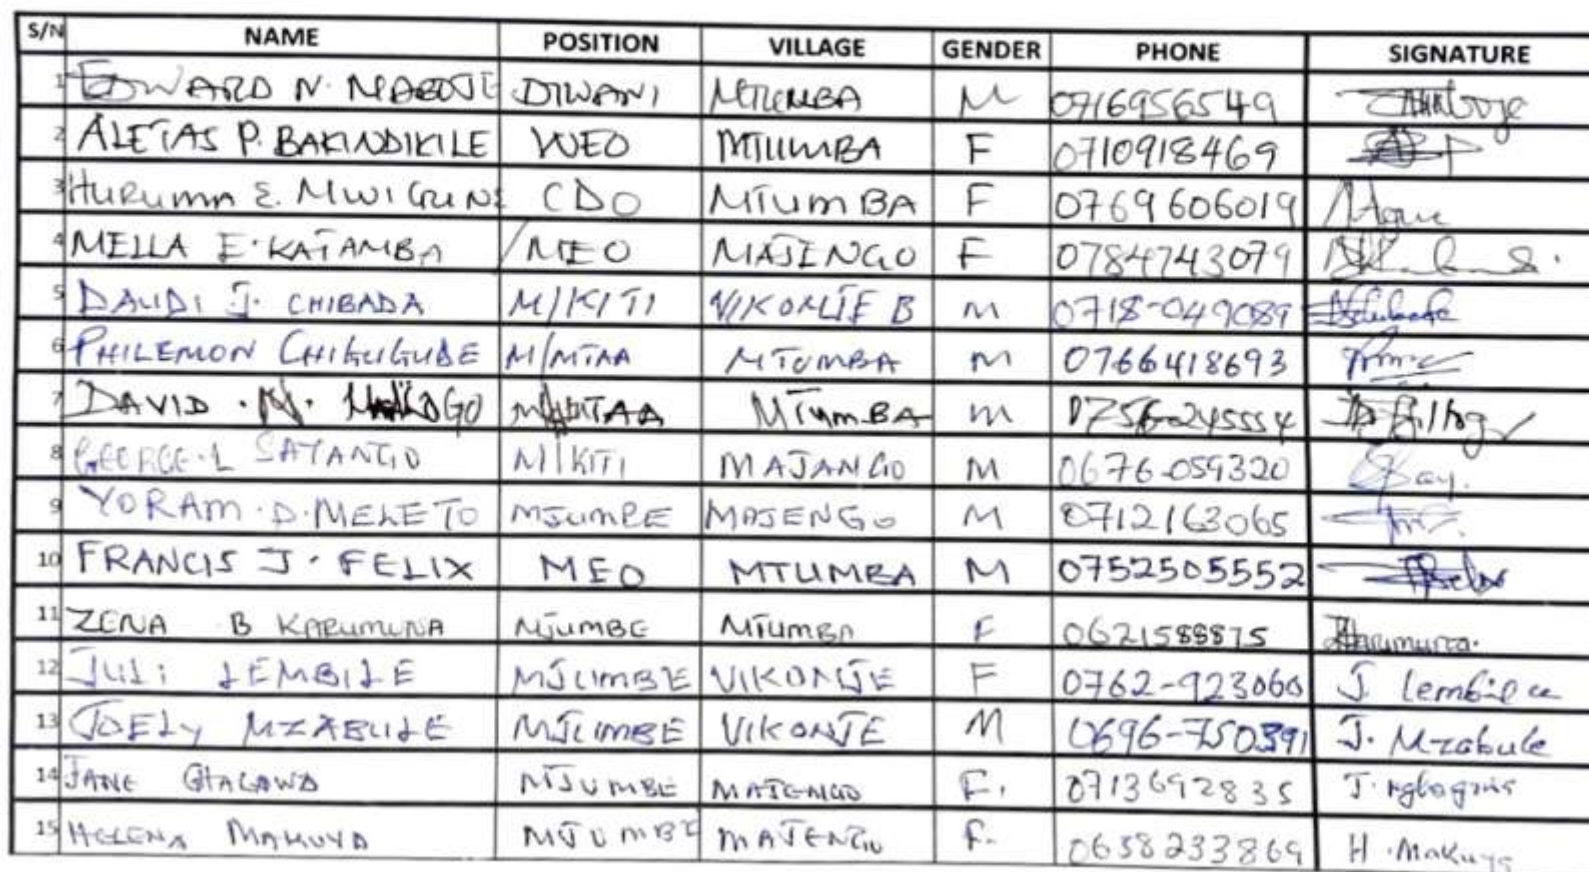 S/N NAME POSITION VILLAGE GENDER PHONE SIGNATURE
1 EDWARD N. MABOJE DIWANI MTUMBA M 0716956549
2 ALETAS P. BAKINDIKILE WEO MTUMBA F 0710918469
3 HURUMA E. MWIGUNE CDO MTUMBA F 0769606019
4 MELLA E. KATAMBA MEO MAJENGO F 0784743079
5 DAUDI J. CHIBADA M/KITI VIKONJE B M 0718-049089
6 PHILEMON CHIGUGUDE M/MTAA MTUMBA M 0766418693
7 DAVID . N. MTUMBA M 0756-245554
8 GEORGE.L SAYANGO M/KITI MAJANGO M 0676-059320
9 YORAM.D.MELETO MJUMBE MAJENGO M 0712163065
10 FRANCIS J. FELIX MEO MTUMBA M 0752505552
11 ZENA B KARUMUNA MJUMBE MTUMBA F 0621588875 Karumuna.
12 JULI LEMBILE MJUMBE VIKONJE F 0762-923060 J. Lembile
13 JOELY MZABULE MJUMBE VIKONJE M 0696-750391 J. Mzabule
14 JANE MJUMBE MAJENGO F. 0713692835
15 HELENA MAKUYA MJUMBE MAJENGO F. 0638233869 H. Makuya